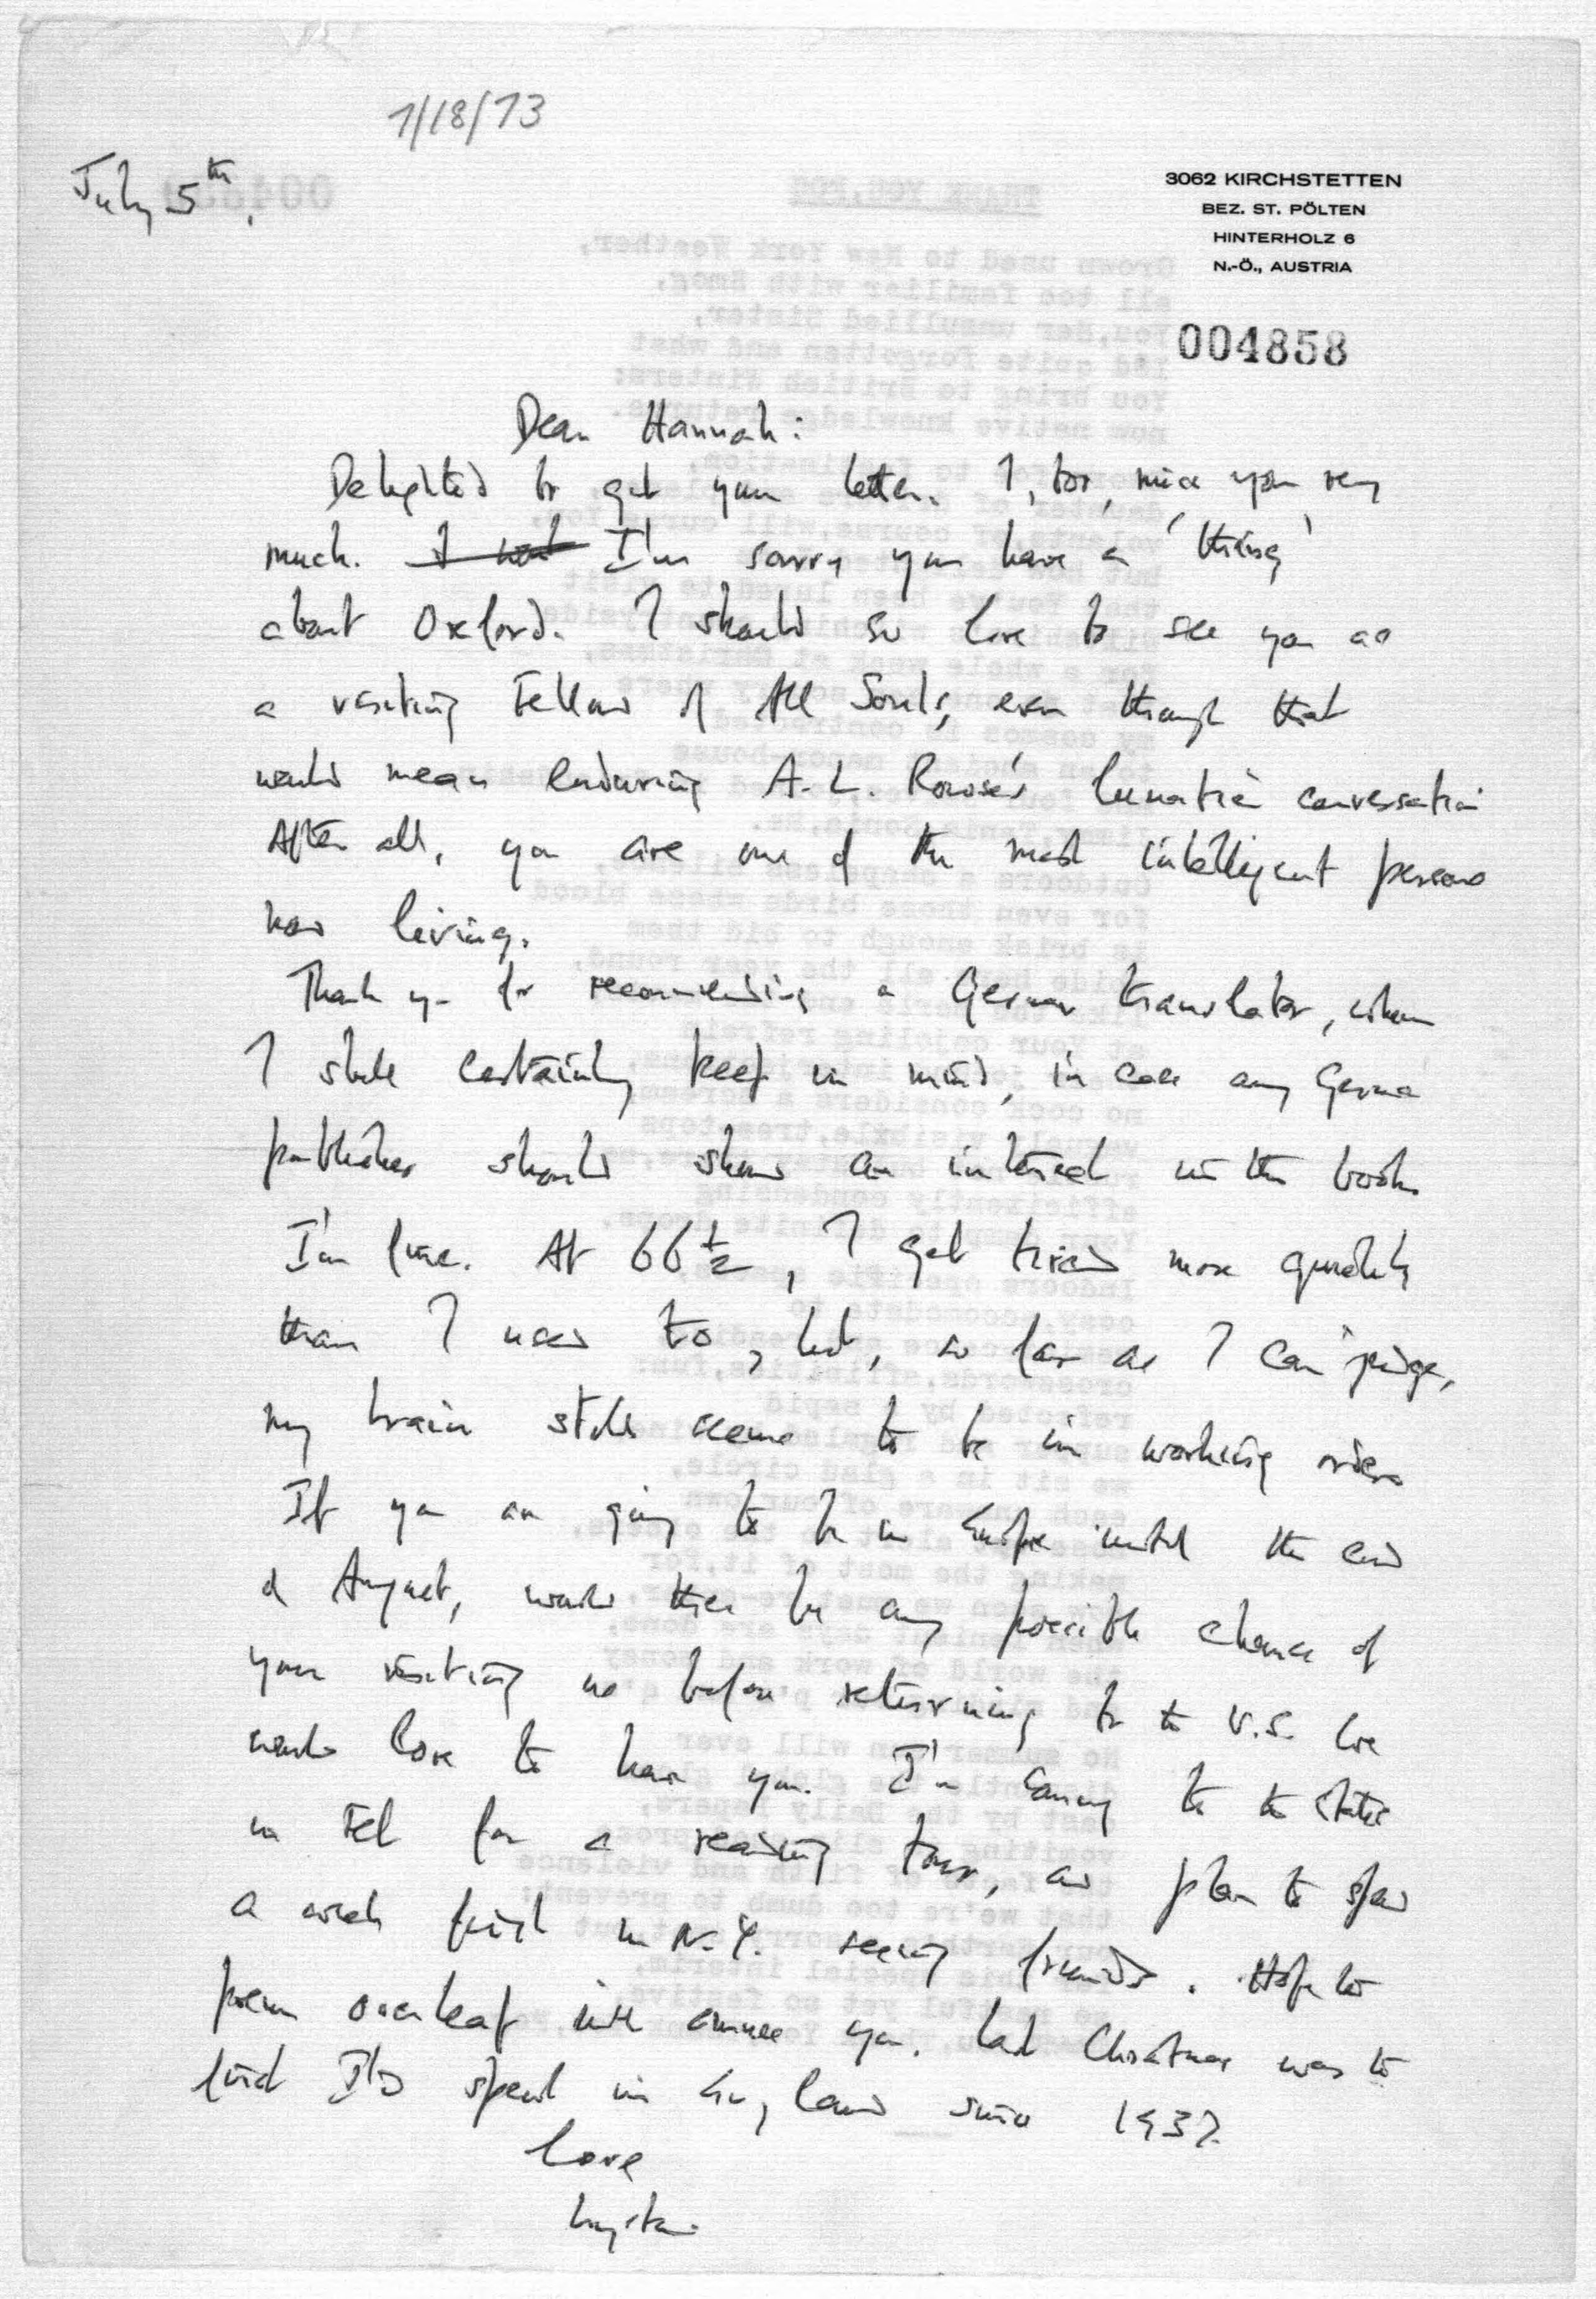 7/18/73
July 5th.
3062 KIRCHSTETTEN
BEZ. ST. PÖLTEN
HINTERHOLZ 6
N.-Ö., AUSTRIA
004858
Dear Hannah:
Delighted to get your letter. I, too, miss you very
much. I'm sorry you have a 'thing'
about Oxford. I should so love to see you as
a visiting Fellow of All Souls, even though that
would mean enduring A.L. Rowse's lunatic conversation
After all, you are one of the most intelligent persons
now living.
Thank you for recommending a German translator, whom
I shall certainly keep in mind, in case any German
publisher should show an interest in the book.
I'm fine. At 66½, I get tired more quickly
than I used to, but, so far as I can judge,
my brain still seems to be in working order
If you are going to be in Europe until the end
of August, would there be any possible chance of
your visiting us before returning to the U.S. We
would love to have you. I'm coming to the States
in Feb for a reading tour, and plan to spend
a week first in N.Y. seeing friends. Hope the
poem overleaf will amuse you. Last Christmas was the
first I'd spent in England since 1937.
Love
Wystan